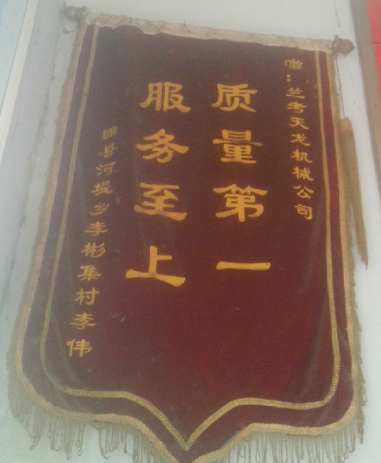 赠：兰考天龙机械公司
质量第一
服务至上
睢县河堤乡李彬集村李伟